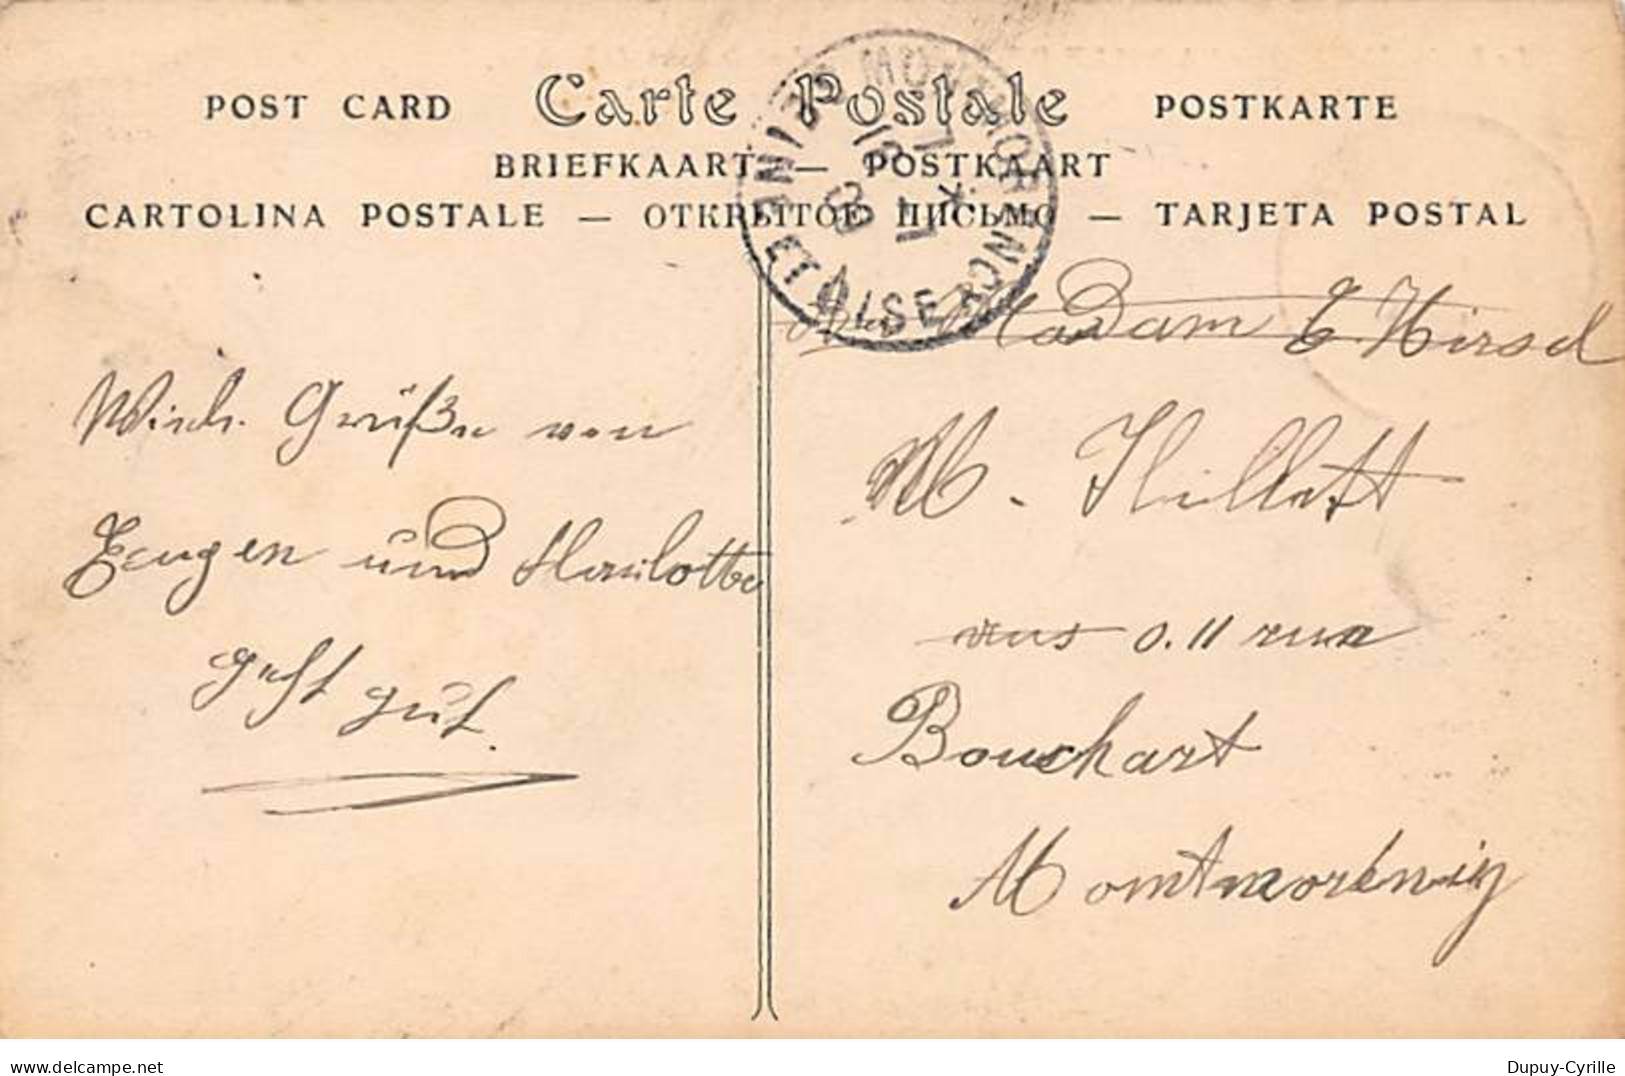 POST CARD Carte Postale POSTKARTE
BRIEFKAART — POSTKAART
CARTOLINA POSTALE — ОТКРЫТОЕ ПИСЬМО — TARJETA POSTAL
MONTMORENCY
SEINE ET OISE
16
09
Madam E Hirsch
M. Thillott
0.11 rue
Bouchart
Montmorénciy
Grüße von
Eugen und Charlotte
geht gut.
www.delcampe.net
Dupuy-Cyrille